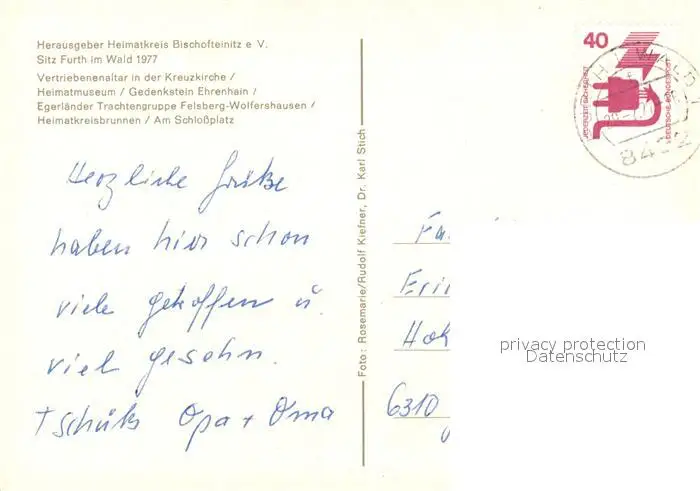 Herausgeber Heimatkreis Bischofteinitz e V.
Sitz Furth im Wald 1977
Vertriebenenaltar in der Kreuzkirche /
Heimatmuseum / Gedenkstein Ehrenhain /
Egerländer Trachtengruppe Felsberg-Wolfershausen /
Heimatkreisbrunnen / Am Schloßplatz
Herzliche Grüße
haben hier schon
viele getroffen u.
viel gesehn.
tschüß Opa + Oma
Foto: Rosemarie/Rudolf Kiefner, Dr. Karl Stich
40
JEDERZEIT SICHERHEIT
DEUTSCHE BUNDESPOST
Fa
Eri
Hoh
6310
privacy protection
Datenschutz